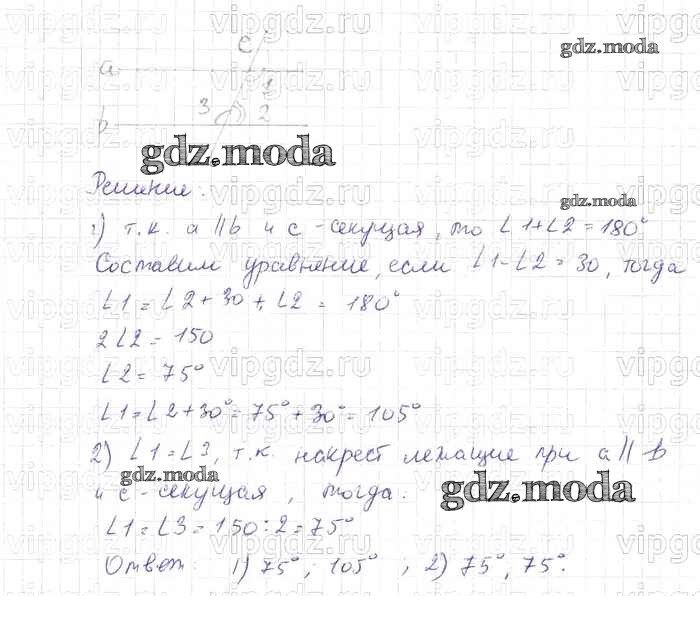 c
gdz.moda
a
1
3 2
b
gdz.moda
Решение:
gdz.moda
1) т.к. a || b и c - секущая, то ∠1+∠2=180°
Составим уравнение, если ∠1-∠2=30, тогда
∠1=∠2+30+∠2 = 180°
2∠2=150
∠2=75°
∠1=∠2+30°=75°+30°=105°
2) ∠1=∠3, т.к. накрест лежащие при a || b
gdz.moda
и c - секущая, тогда:
gdz.moda
∠1=∠3=150:2=75°
Ответ: 1) 75°; 105° ; 2) 75°, 75°.
vipgdz.ru